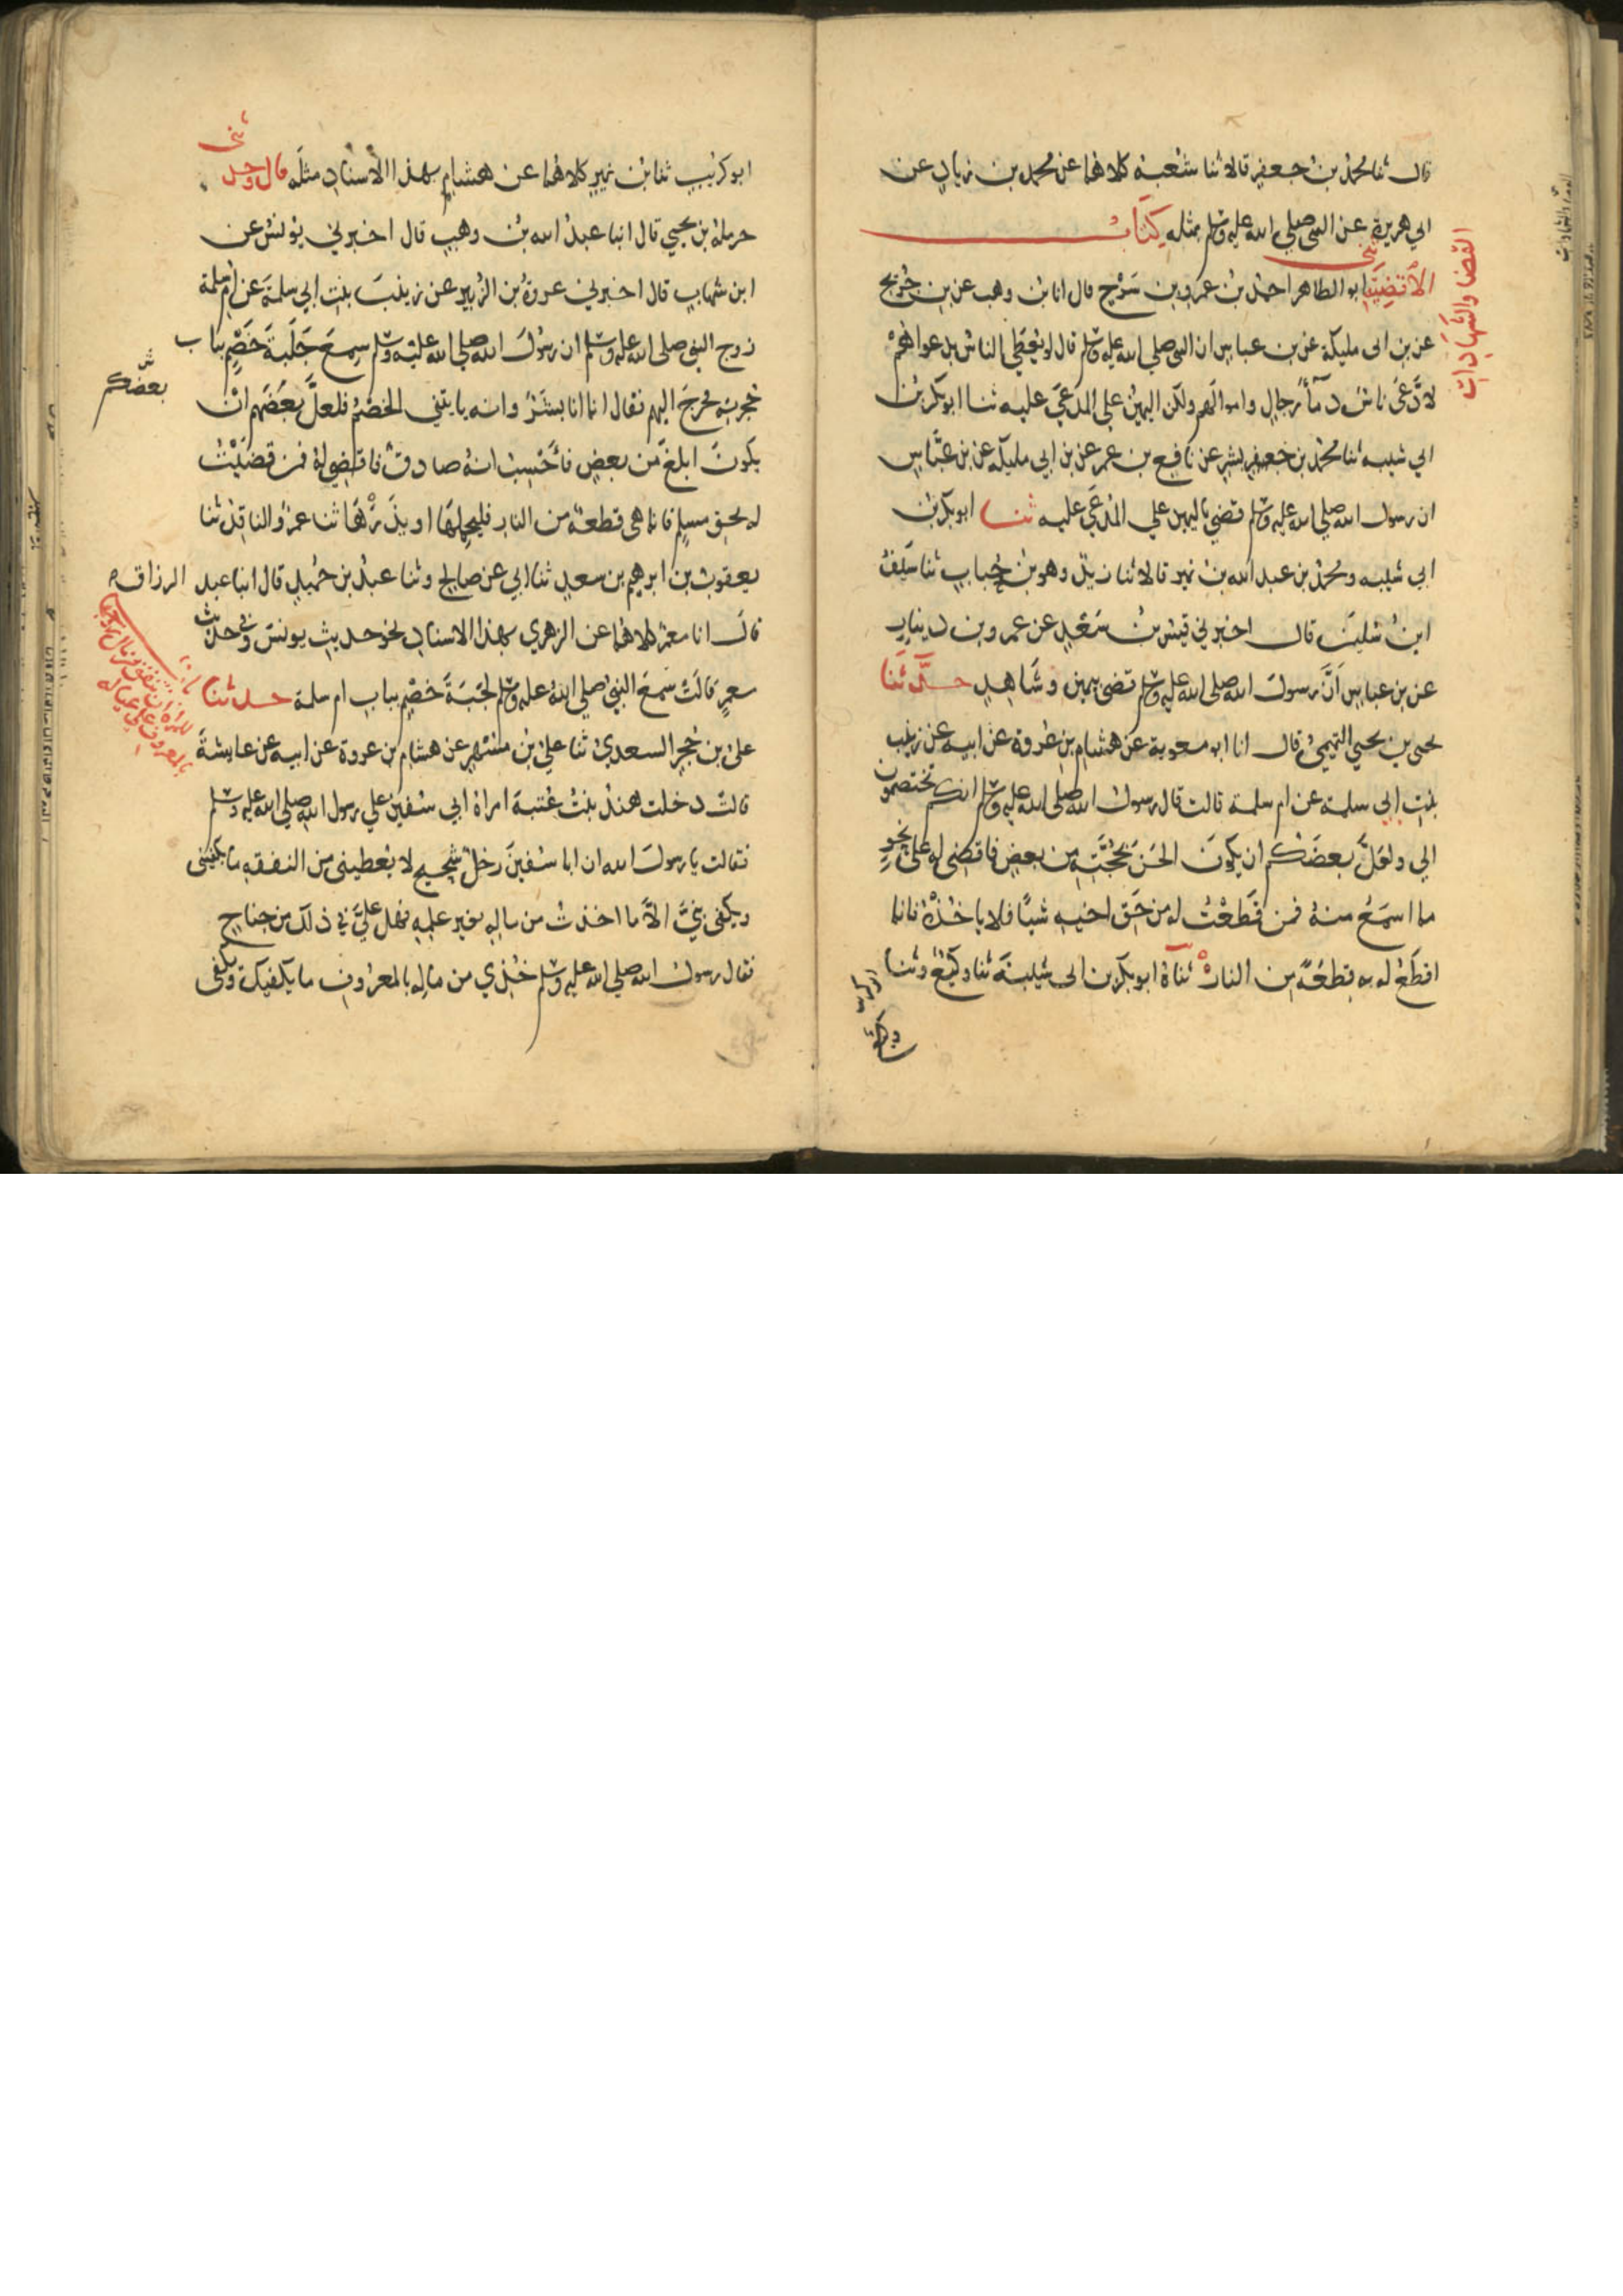 قال ثنا محمد بن جعفر قالا ثنا شعبة كلاهما عن محمد بن زياد عن
ابي هريرة عن النبي صلي الله عليه وسلم بمثله كتاب
الاقضية ثني ابو الطاهر احمد بن عمرو بن سرح قال انا بن وهب عن بن جريج
عن بن ابي مليكة عن بن عباس ان النبي صلي الله عليه وسلم قال لو يعطي الناس بدعواهم
لادعى ناس دمآء رجال واموالهم ولكن اليمين علي المدعي عليه ثنا ابو بكر بن
ابي شيبه ثنا محمد بن بشر عن نافع بن عمر عن بن ابي مليكه عن بن عباس
ان رسول الله صلي الله عليه وسلم قضي باليمين علي المدعي عليه ثنا ابو بكر بن
ابي شيبه ومحمد بن عبد الله بن نمير قالا ثنا زيد وهو بن حباب ثنا سيف
ابن سليمن قال اخبرني قيس بن سعد عن عمرو بن دينار
عن بن عباس ان رسول الله صلى الله عليه وسلم قضى بيمين وشاهد حدثنا
يحيى بن يحيي التميمي قال انا ابو معوية عن هشام بن عروة عن ابيه عن زينب
بنت ابي سلمة عن ام سلمة قالت قال رسول الله صلى الله عليه وسلم انكم تختصمون
الي ولعل بعضكم ان يكون الحن بحجته من بعض فاقضي له على نحو
مما اسمع منه فمن قطعت له من حق اخيه شيئا فلا ياخذه فانما
اقطع له به قطعة من النار ثناه ابو بكر بن ابي شيبة ثنا وكيع وثنا
القضا والشهادات
ابو كريب ثنا بن نمير كلاهما عن هشام بهذا الاسناد مثله قال وحد
ثني
حرملة بن يحيي قال انبا عبد الله بن وهب قال اخبرني يونس عن
ابن شهاب قال اخبرني عروة بن الزبير عن زينب بنت ابي سلمة عن ام سلمة
زوج النبي صلى الله عليه وسلم ان رسول الله صلى الله عليه وسلم سمع جلبة خصم بباب
حجرته فخرج اليهم فقال انما انا بشر وانه ياتيني الخصم فلعل بعضهم ان
بعضكم
يكون ابلغ من بعض فاحسب انه صادق فاقضي له فمن قضيت
له بحق مسلم فانما هى قطعة من النار فليحملها او يذرها ثنا عمرو الناقد ثنا
يعقوب بن ابرهيم بن سعد ثنا ابي عن صالح وثنا عبد بن حميد قال انبا عبد الرزاق
قال انا معمر كلاهما عن الزهري بهذا الاسناد نحو حديث يونس وفي حديث
معمر قالت سمع النبي صلي الله عليه وسلم لجبة خصم بباب ام سلمة حدثنا
علي بن حجر السعدي ثنا علي بن مسهر عن هشام بن عروة عن ابيه عن عايشة
قالت دخلت هند بنت عتبة امراة ابي سفين علي رسول الله صلي الله عليه وسلم
فقالت يا رسول الله ان ابا سفين رجل شحيح لا يعطيني من النفقه ما يكفيني
ويكفي بني الا ما اخذت من ماله بغير علمه فهل علي في ذلك من جناح
فقال رسول الله صلي الله عليه وسلم خذي من ماله بالمعروف ما يكفيك ويكفي
للمراة ان تنفق من مال زوجها
بالمعروف علي عياله